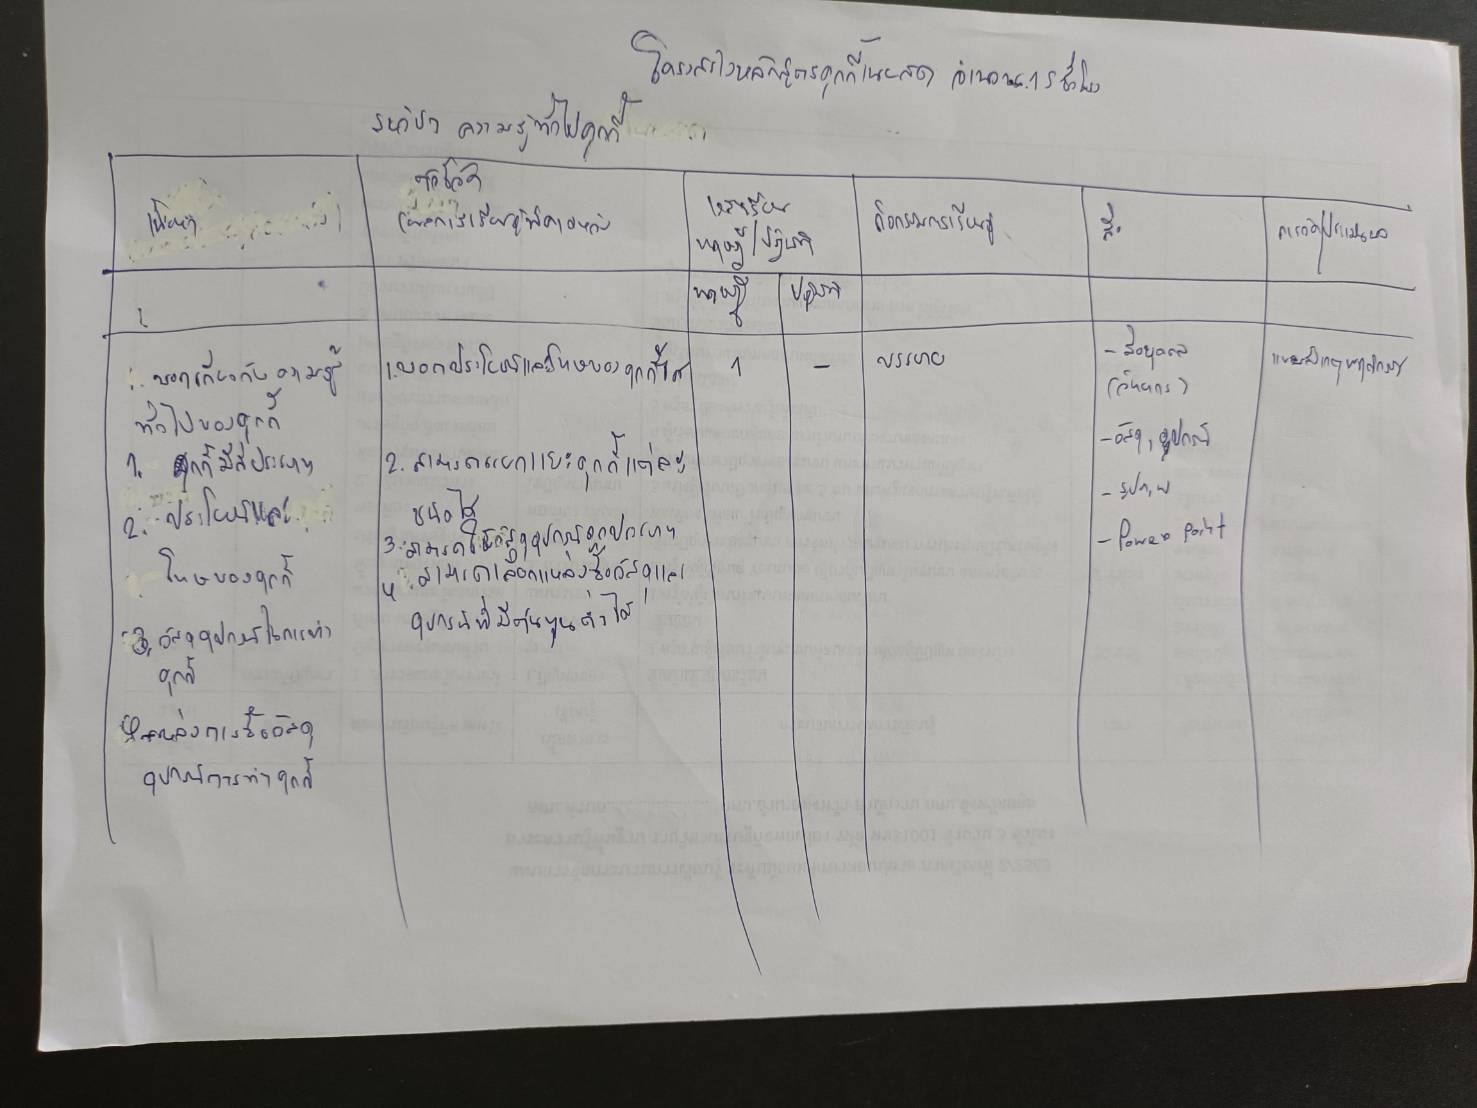 โครงสร้างหลักสูตรคุกกี้เนยสด จำนวน 15 ชั่วโมง
ความรู้ทั่วไปคุกกี้
เนื้อหา
ตัวชี้วัด
(ผลการเรียนรู้ที่คาดหวัง
ทฤษฎี/ปฏิบัติ
กิจกรรมการเรียนรู้
สื่อ
การวัด/ประเมินผล
ทฤษฎี
ปฏิบัติ
บอกเกี่ยวกับ ความรู้
ทั่วไปของคุกกี้
1. คุกกี้มีกี่ประเภท
2. ประโยชน์และ
โทษของคุกกี้
3. วัสดุอุปกรณ์ในการทำ
คุกกี้
4. แหล่งการซื้อวัสดุ
อุปกรณ์การทำคุกกี้
1. บอกประโยชน์และโทษของคุกกี้ได้
2. สามารถแยกแยะคุกกี้แต่ละ
ชนิดได้
3. สามารถใช้วัสดุอุปกรณ์ถูกประเภท
4. สามารถเลือกแหล่งซื้อวัสดุและ
อุปกรณ์ที่มีต้นทุนต่ำได้
1
-
บรรยาย
- สื่อบุคคล
(วิทยากร)
- วัสดุ, อุปกรณ์
- รูปภาพ
- Power Point
แบบสังเกตพฤติกรรม